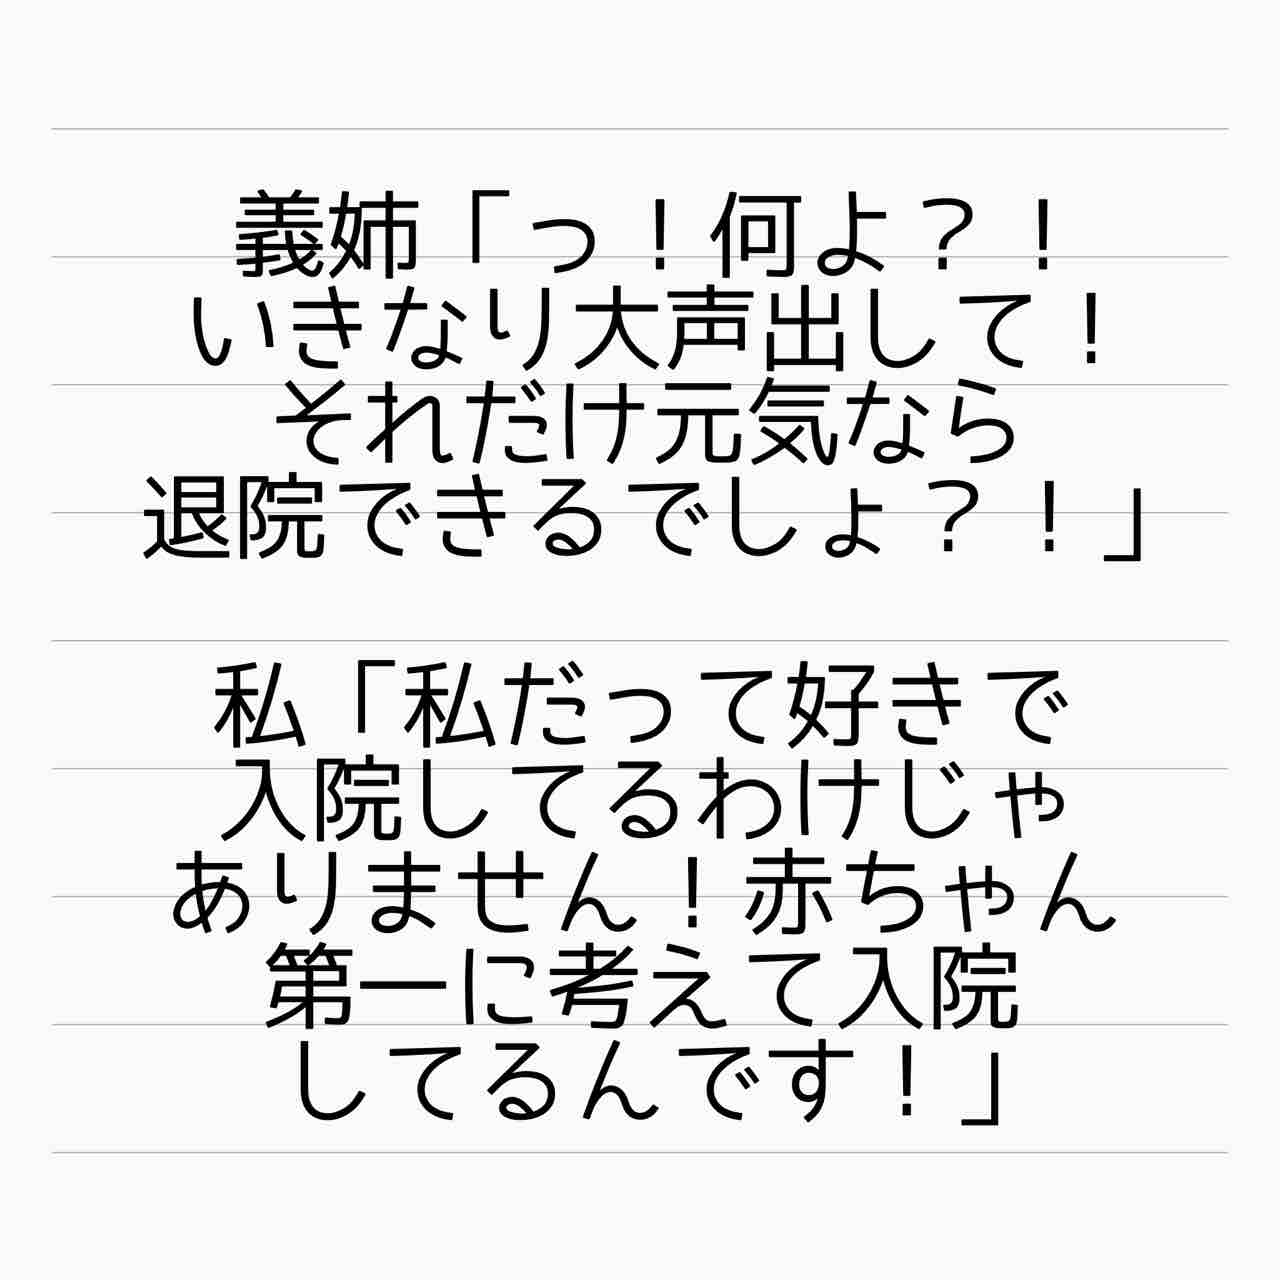 義姉「っ！何よ？！
いきなり大声出して！
それだけ元気なら
退院できるでしょ？！」
私「私だって好きで
入院してるわけじゃ
ありません！赤ちゃん
第一に考えて入院
してるんです！」